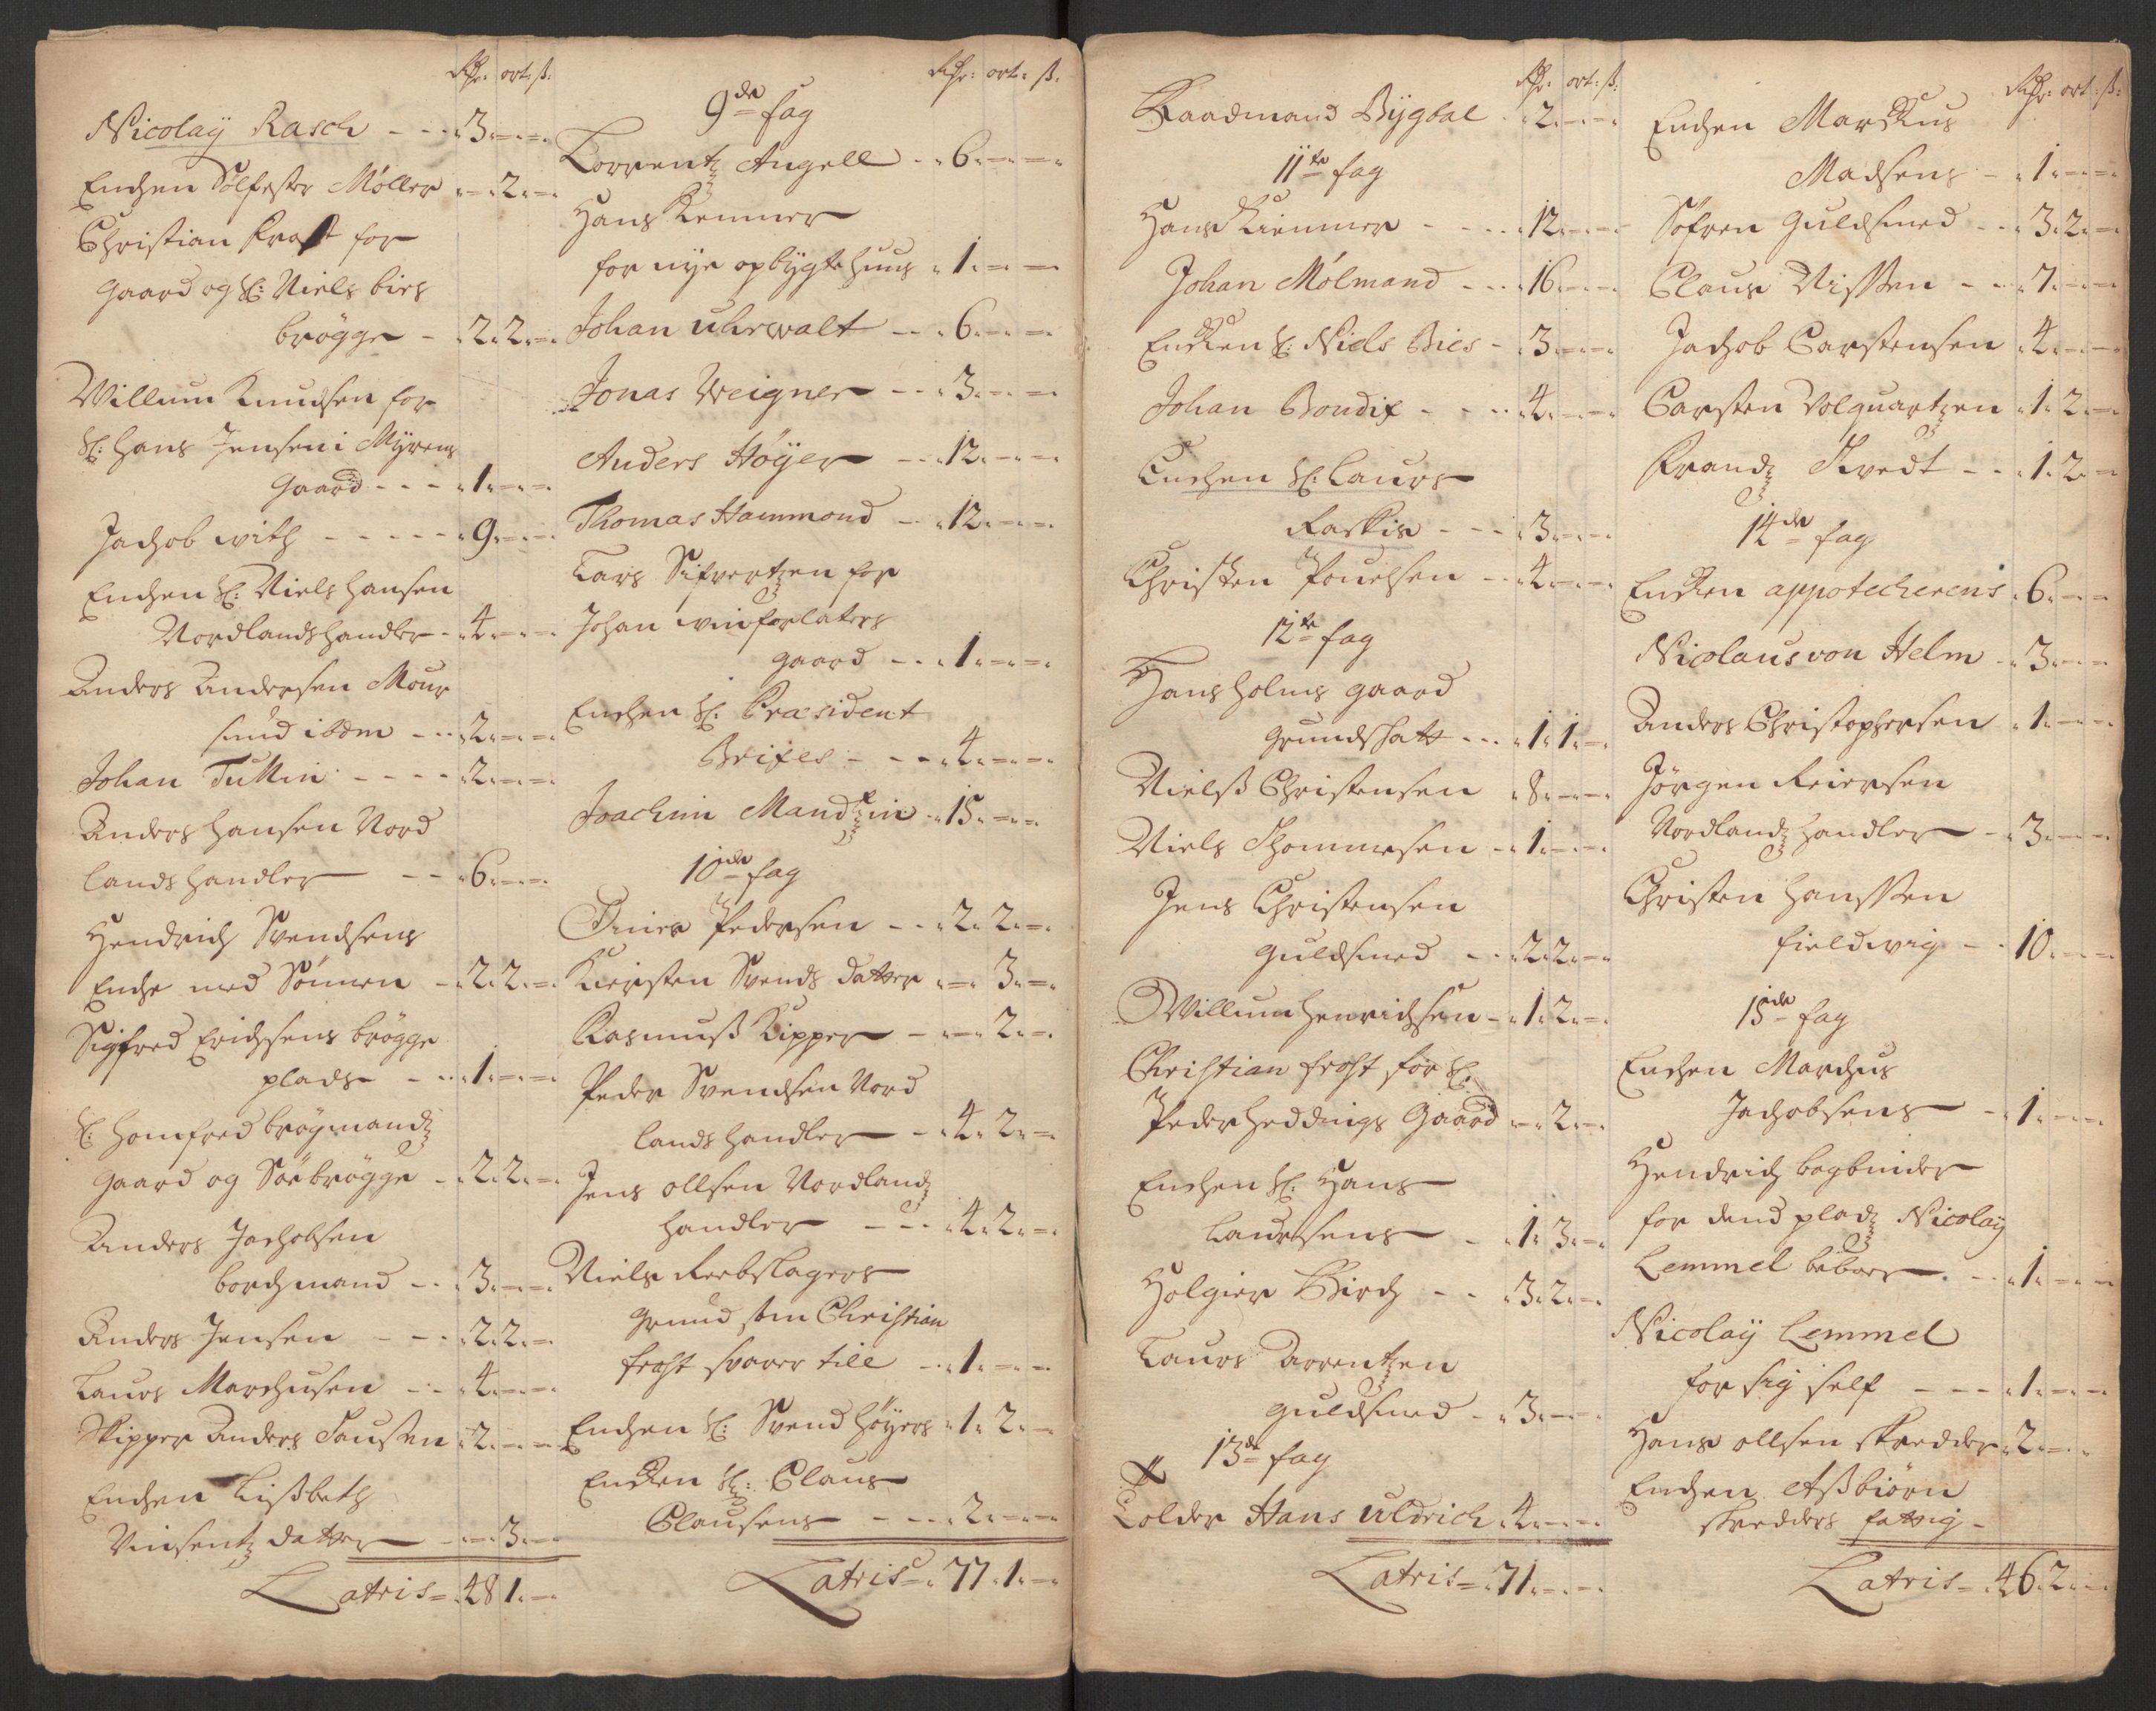 Rdr: ort: ß:
Nicolaÿ Rasch - - - 3. - -
Enchen Sølfester Møller - 2. -
Christian Frost for
Gaard og Sl: Niels bies
brøgge - 2. 2. -
Willum Knudsen for
Sl: Hans Jensen i Mÿrens
Gaard - - - 1. - -
Jachob with - - - - - 9. - -
Enchen Sl: Niels Hansen
Nordlandshandler - 4. - -
Anders Andersen Mour
smd ibdm - - 2. - -
Johan Tullin - - - - 2. - -
Anders Hansen Nord
landshandler - - 6. - -
Hendrich Svendsens
Enche med Sønnen - 2. 2. -
Sigfred Erichsens brøgge
plads - - - 1. - -
Sl: Homfred brøgmandz
Gaard og Søebrøgge - 2. 2. -
Anders Jachobsen
borchmand - - 3. - -
Anders Jensen - - - 2. 2. -
Laurs Marchusen - - 4. - -
Skipper Anders Pausen 2. - -
Enchen Lißbeth
Vinsentz datter - - 3. -
Latris = 48 1. -
Rdr: ort: ß:
9de fag
Lorrentz Angell - - 6. - -
Hans Kemmer
for nÿe opbÿgte huus 1. - -
Johan uhrwalt - - 6. - -
Jonas Weigner - - 3. - -
Anders Høÿer - - 12. - -
Thomas Hammond - - 12. - -
Lars Sifvertzen for
Johan winforlaters
gaard - - - 1. - -
Enchen Sl: Præsident
Brixes - - - 4. - -
Joachim Mandixin - 15. - -
10de fag
Einer Pedersen - - 2. 2. -
Kiersten Svends datter - 3. -
Rasmuß Kipper - - 2. -
Peder Svendsen Nord
landshandler - 4. 2. -
Jens ollsen Nordlandz
handler - - - 4. 2. -
Niels Rebslagers
grund som Christian
frost svarer till - - 1. - -
Enchen Sl: Svend Høÿers 1. 2. -
Encken Sl: Claus
Clausens - - - 2. - -
Latris = 77. 1. -
Rdr: ort: ß:
Raadmand Bÿgbal 2. - -
11te fag
Hans Kiemmer - - - - 12. - -
Johan Mølmand - - - 16. - -
Encken Sl: Niels Bies - 3. - -
Johan Bondix - - - 4. - -
Enchen Sl: Laurs
Raskis - - - 3. - -
Christen Pouelsen - - 4. - -
12te fag
Hans holms gaard
grundskatt - - - 1. 1. -
Nielß Christensen 8. - -
Niels Thommesen - 1. - -
Jens Christensen
guldsmed - - 2. 2. -
Willum Henrichsen - 1. 2. -
Christian frost for Sl:
Peder Heddings Gaard - 2. -
Enchen Sl: Hans
Laursens - 1. 3. -
Holgier Birch - - 3. 2. -
Laurs Arrentzen
guldsmed - 3. - -
13de fag
Tolder Hans uldrich 4. - -
Latris = 71. - -
Rdr: ort: ß:
Enchen Marckus
Madsens - 1. - -
Søfren Guldsmed - - 3. 2. -
Claus Nissen - - 7. - -
Jachob Carstensen 4. - -
Carsten Volquartzen 1. 2. -
Frandz Tvedt - - 1. 2. -
14de fag
Encken appotecherens 6. - -
Nicolaus von Helm - 3. - -
Anders Christophersen 1. - -
Jørgen Reiersen
Nordlandz handler - 3. - -
Christen Hanssen
fieldwig - - 10. - -
15de fag
Enchen Marchus
Jachobsens - 1. - -
Hendrich bogbinder
for dend pladz Nicolaÿ
Lemmel beboer - - 1. - -
Nicolaÿ Lemmel
for sig self - - - 1. - -
Hans ollsen skredder 2. - -
Enchen Aßbiørn
skredders fattig -
Latris = 46. 2. -